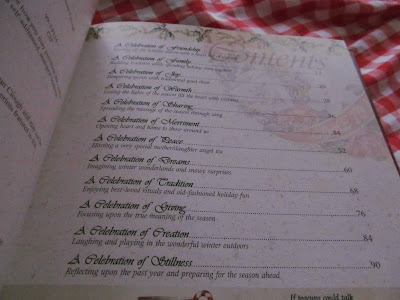 Contents
A Celebration of Friendship
A Celebration of Family
A Celebration of Joy
good cheer
A Celebration of Warmth
Easing the of the season till the heart with
A Celebration of Sharing
Spreading the message of the season through song
A Celebration of Merriment
Opening heart and home to those around us 44
A Celebration of Peace
Hosting a very special mother/daughter angel tea 52
A Celebration of Dreams
Imagining winter wonderlands and snowy surprises 60
A Celebration of Tradition
Enjoying best-loved rituals and old-fashioned holiday fun 68
A Celebration of Giving
Focusing upon the true meaning of the season 76
A Celebration of Creation
Laughing and playing in the wonderful winter outdoors 84
A Celebration of Stillness 90
Reflecting upon the past year and preparing for the season ahead
If teacups could talk